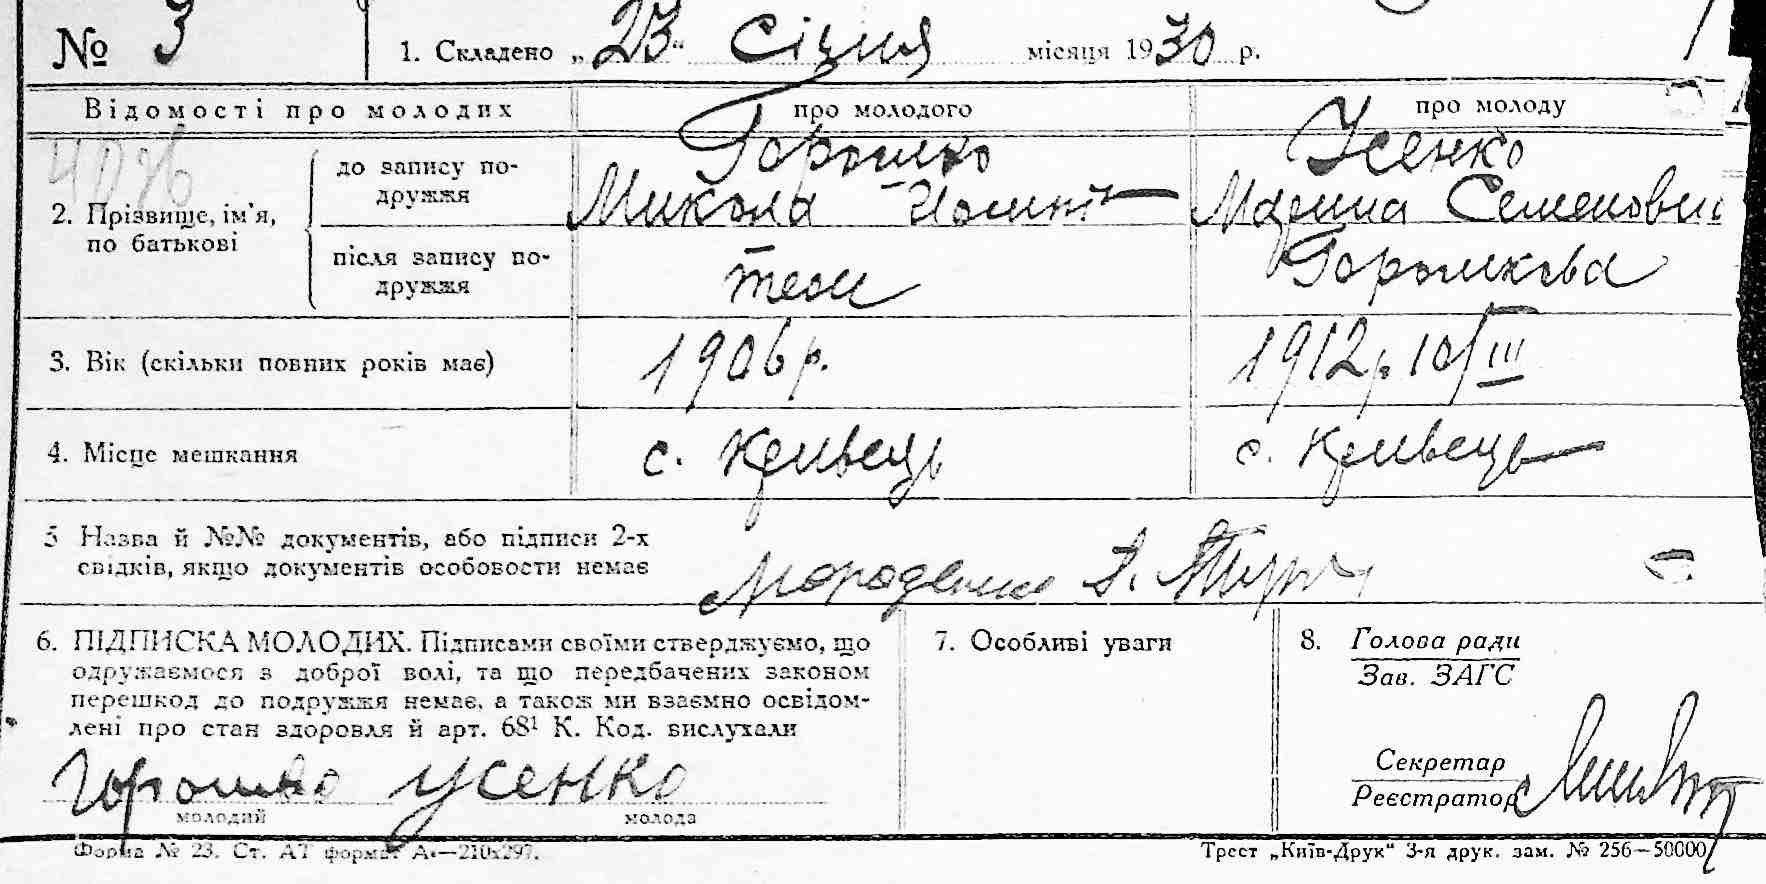 № 3 1. Складено „23“ Січня місяця 1930 р.
Відомості про молодих про молодого про молоду
4076
2. Прізвище, ім’я, по батькові
до запису по-
дружжя
Горошко
Микола
Усенко
Марина Семеновна
після запису по-
дружжя
теж
Горошкова
3. Вік (скільки повних років має) 1906 р. 1912 р. 10/III
4. Місце мешкання с. Кривець с. Кривець
5 Назва й №№ документів, або підписи 2-х
свідків, якщо документів особовости немає
6. ПІДПИСКА МОЛОДИХ. Підписами своїми стверджуємо, що
одружаємося з доброї волі, та що передбачених законом
перешкод до подружжя немає, а також ми взаємно освідом-
лені про стан здоровля й арт. 68¹ К. Код. вислухали
Горошко Усенко
молодий молода
7. Особливі уваги
8. Голова ради
Зав. ЗАГС
Секретар
Реєстратор
Форма № 23. Ст. АТ формат А₄—210х297.
Трест „Київ-Друк“ 3-я друк. зам. № 256—50000